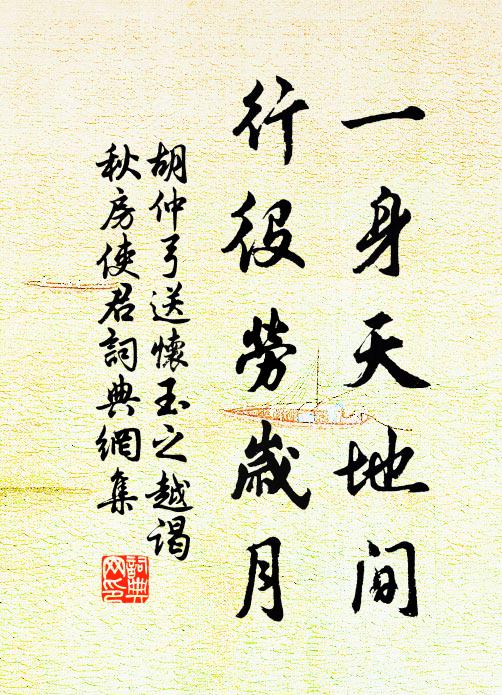 一身天地间
行役勞歲月
胡仲弓送懷玉之越謁
秋房使君詞典網集
詞典
网印